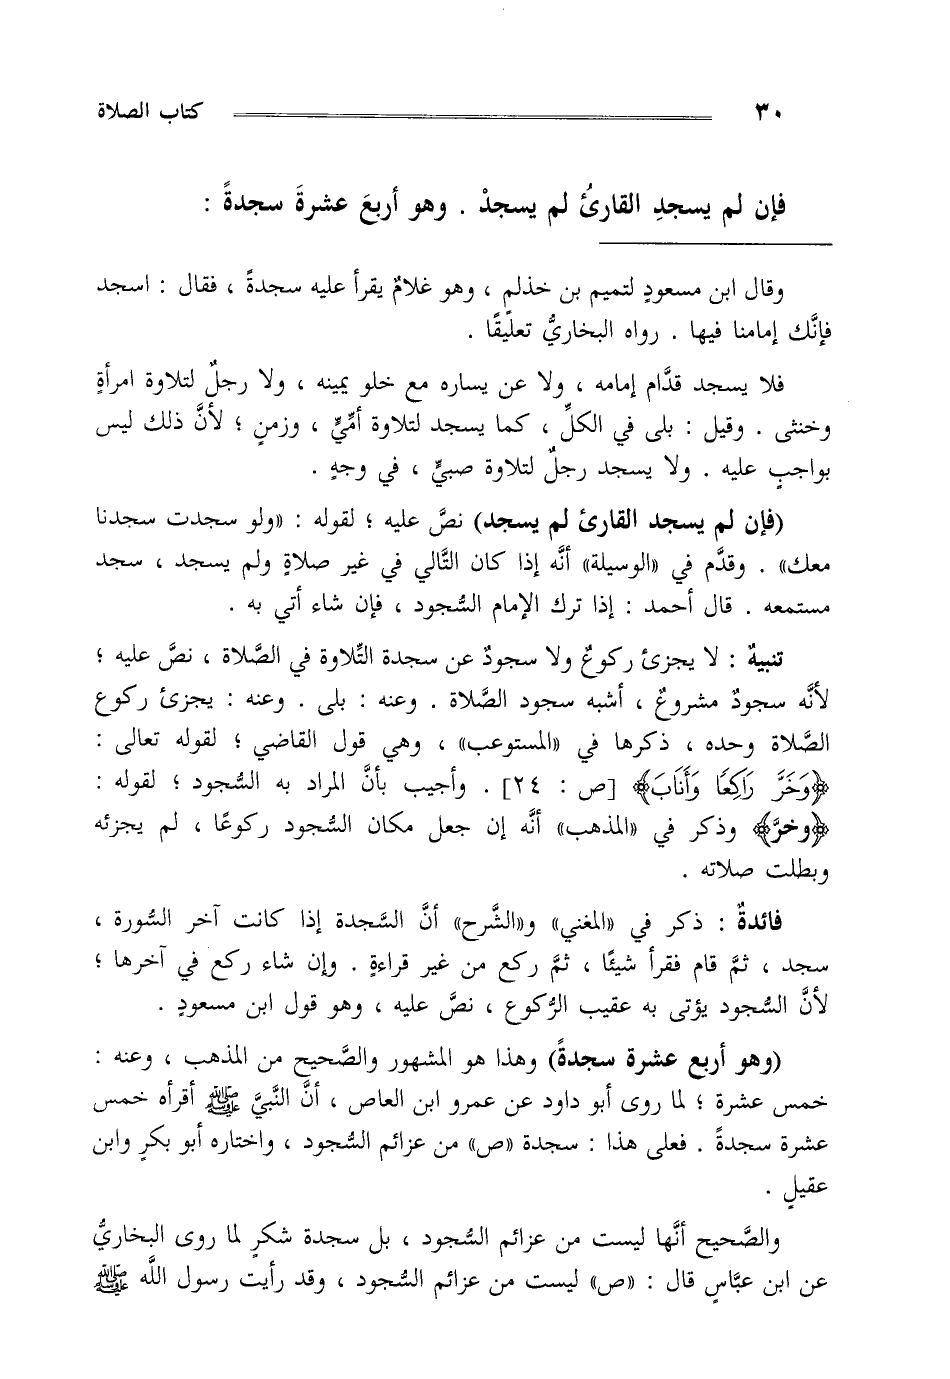 ٣٠ كتاب الصلاة
فإن لم يسجدِ القارئُ لم يسجدْ . وهو أربعَ عشرةَ سجدةً :
وقال ابن مسعودٍ لتميم بن خذلمٍ ، وهو غلامٌ يقرأ عليه سجدةً ، فقال : اسجد
فإنَّك إمامنا فيها . رواه البخاريُّ تعليقًا .
فلا يسجد قدَّام إمامه ، ولا عن يساره مع خلو يمينه ، ولا رجلٌ لتلاوة امرأةٍ
وخنثى . وقيل : بلى في الكلِّ ، كما يسجد لتلاوة أمِّيٍّ ، وزمنٍ ؛ لأنَّ ذلك ليس
بواجبٍ عليه . ولا يسجد رجلٌ لتلاوة صبيٍّ ، في وجهٍ .
(فإن لم يسجد القارئ لم يسجد) نصَّ عليه ؛ لقوله : «ولو سجدت سجدنا
معك» . وقدَّم في «الوسيلة» أنَّه إذا كان التَّالي في غير صلاةٍ ولم يسجد ، سجد
مستمعه . قال أحمد : إذا ترك الإمام السُّجود ، فإن شاء أتي به .
تنبيهٌ : لا يجزئ ركوعٌ ولا سجودٌ عن سجدة التِّلاوة في الصَّلاة ، نصَّ عليه ؛
لأنَّه سجودٌ مشروعٌ ، أشبه سجود الصَّلاة . وعنه : بلى . وعنه : يجزئ ركوع
الصَّلاة وحده ، ذكرها في «المستوعب» ، وهي قول القاضي ؛ لقوله تعالى :
﴿وَخَرَّ رَاكِعًا وَأَنَابَ﴾ [ص : ٢٤] . وأجيب بأنَّ المراد به السُّجود ؛ لقوله :
﴿وخرَّ﴾ وذكر في «المذهب» أنَّه إن جعل مكان السُّجود ركوعًا ، لم يجزئه
وبطلت صلاته .
فائدةٌ : ذكر في «المغني» و«الشَّرح» أنَّ السَّجدة إذا كانت آخر السُّورة ،
سجد ، ثمَّ قام فقرأ شيئًا ، ثمَّ ركع من غير قراءةٍ . وإن شاء ركع في آخرها ؛
لأنَّ السُّجود يؤتى به عقيب الرُّكوع ، نصَّ عليه ، وهو قول ابن مسعودٍ .
(وهو أربع عشرة سجدةً) وهذا هو المشهور والصَّحيح من المذهب ، وعنه :
خمس عشرة ؛ لما روى أبو داود عن عمرو ابن العاص ، أنَّ النَّبيَّ ﷺ أقرأه خمس
عشرة سجدةً . فعلى هذا : سجدة «ص» من عزائم السُّجود ، واختاره أبو بكرٍ وابن
عقيلٍ .
والصَّحيح أنَّها ليست من عزائم السُّجود ، بل سجدة شكرٍ لما روى البخاريُّ
عن ابن عبَّاسٍ قال : «ص» ليست من عزائم السُّجود ، وقد رأيت رسول اللَّه ﷺ